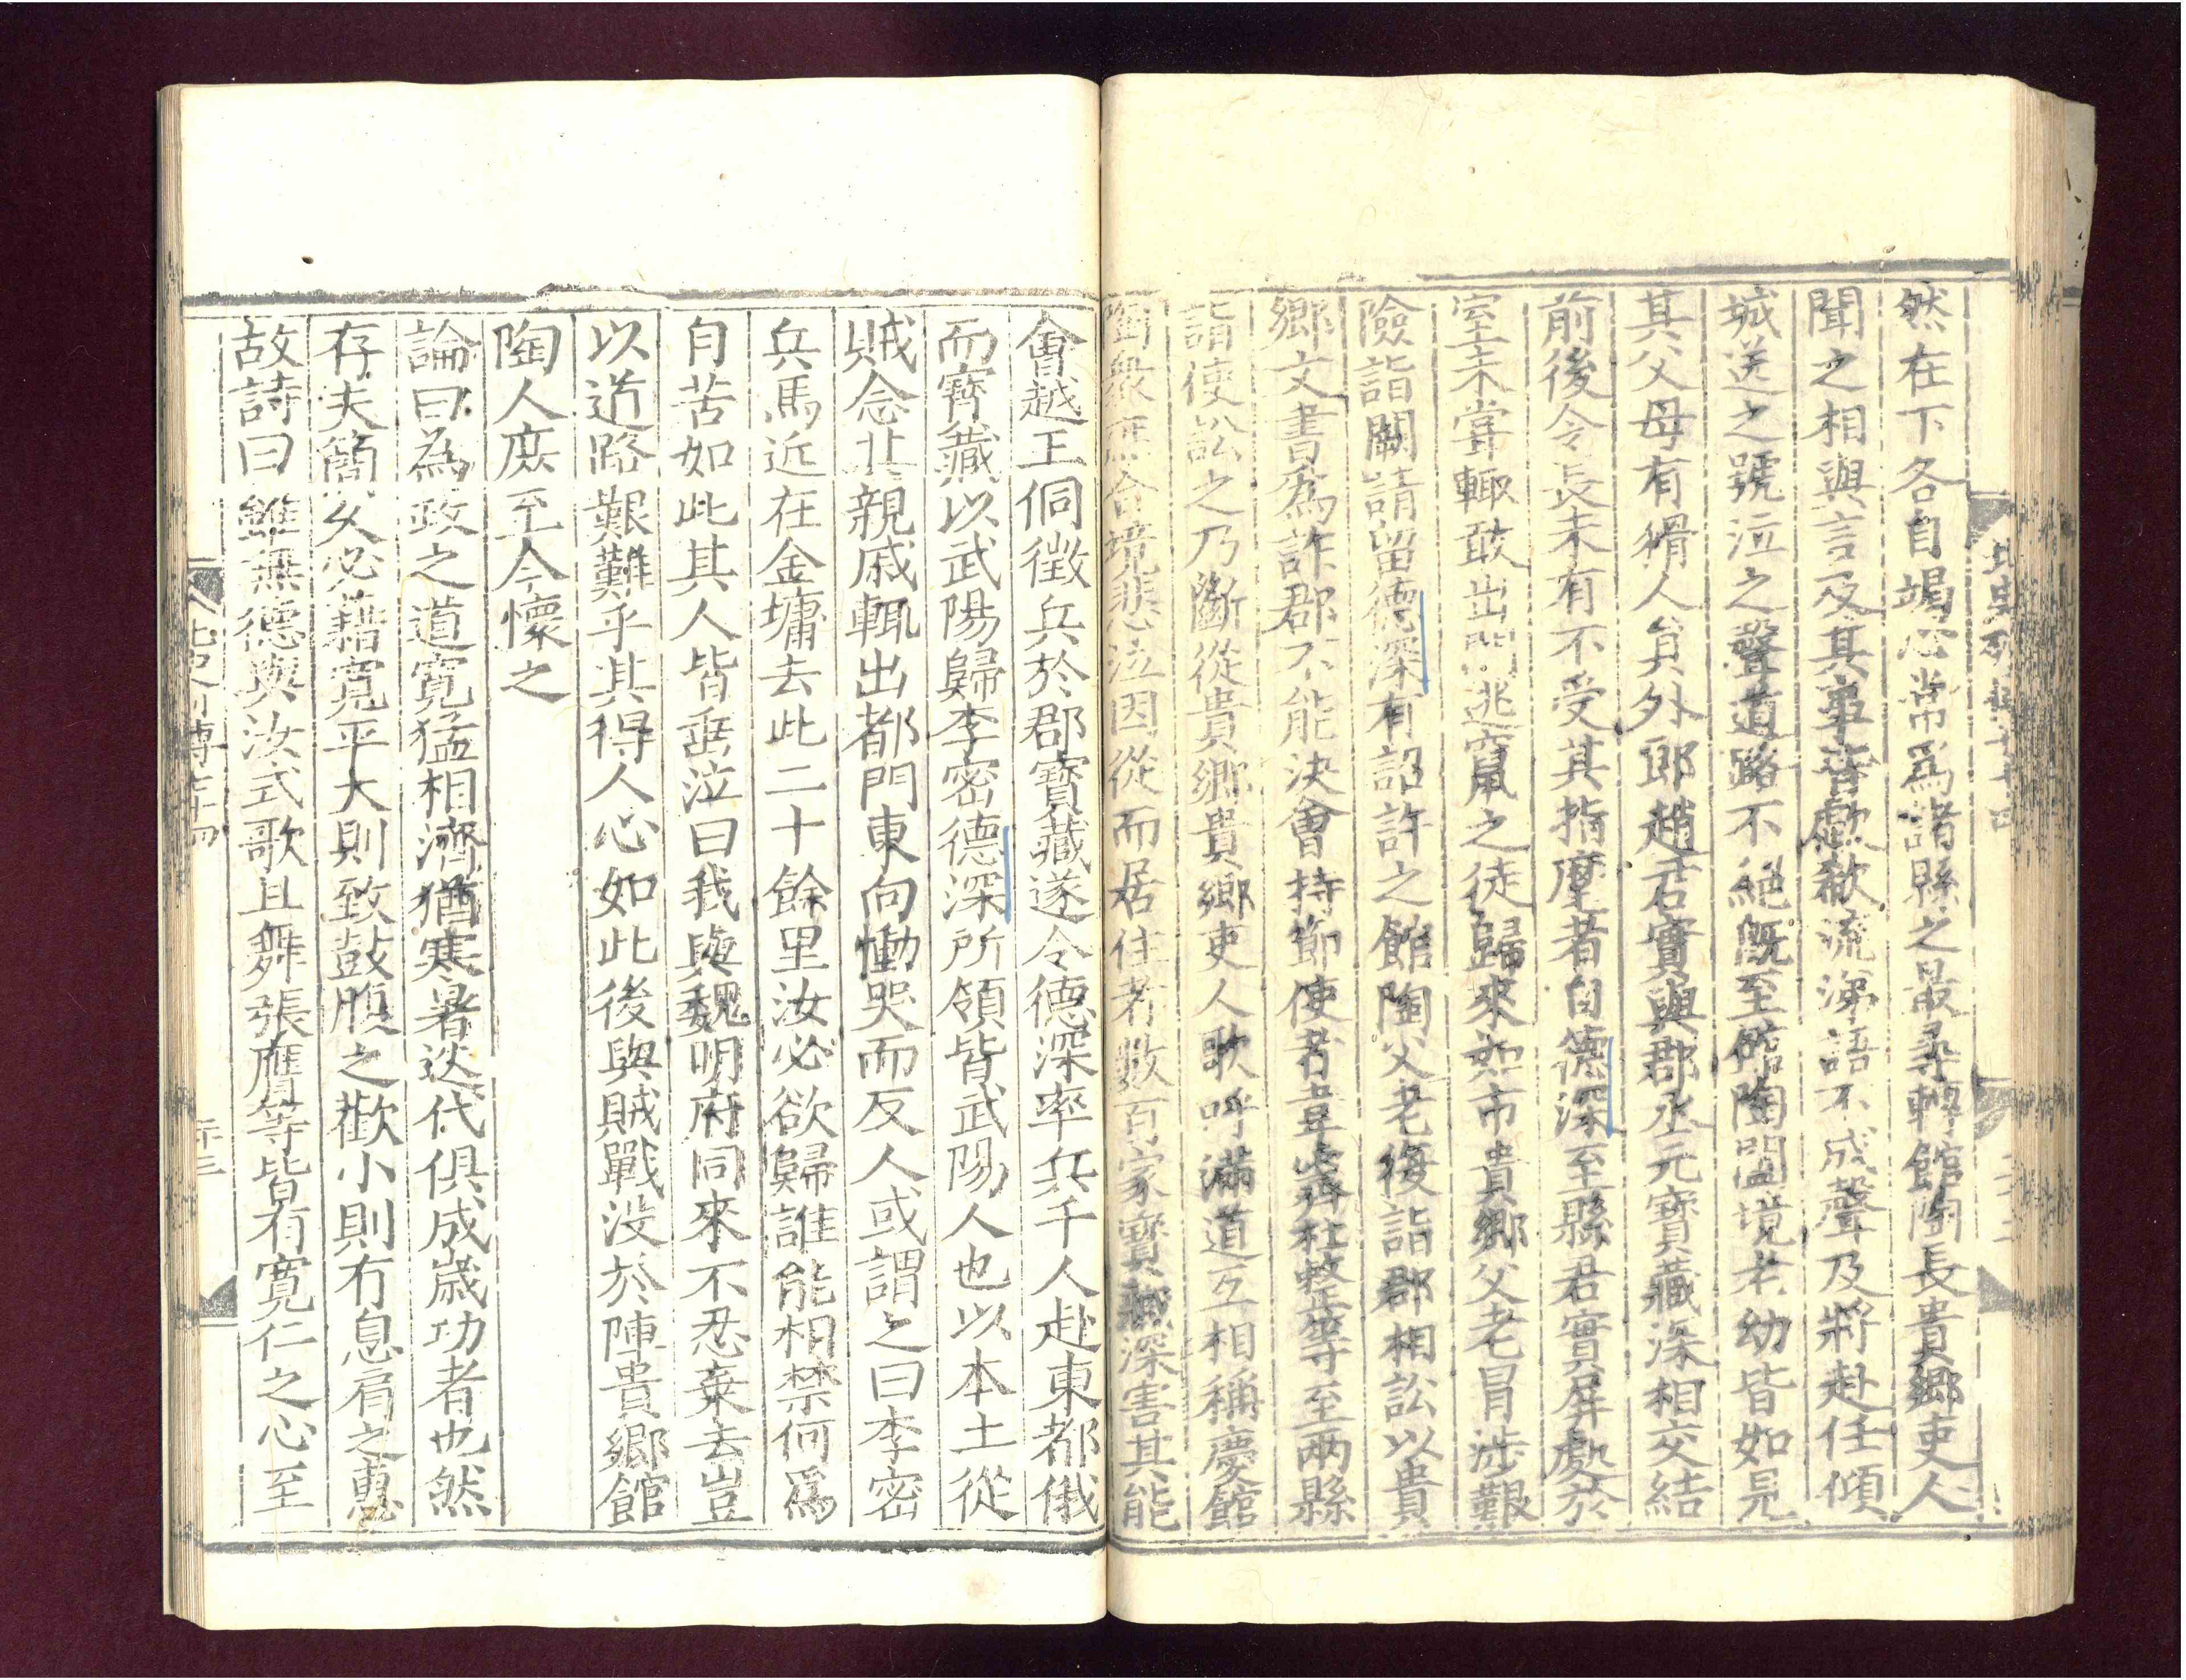 然在下各自竭心常爲諸縣之最尋轉館陶長貴鄉吏人
聞之相與言及其事皆歔欷流涕語不成聲及將赴任傾
城送之號泣之聲道路不絕旣至館陶闔境老幼皆如見
其父母有猾人員外郎趙君實與郡丞元寶藏深相交結
前後令長未有不受其指麾者自德深至縣君實屏處於
室未嘗輒敢出門逃竄之徒歸來如市貴鄉父老冒涉艱
險詣闕請留德深有詔許之館陶父老復詣郡相訟以貴
鄉文書爲詐郡不能決會持節使者韋霽杜整等至兩縣
詣使訟之乃斷從貴鄉貴鄉吏人歌呼滿道互相稱慶館
陶衆庶合境悲泣因從而居住者數百家寶藏深害其能
會越王侗徵兵於郡寶藏遂令德深率兵千人赴東都俄
而寶藏以武陽歸李密德深所領皆武陽人也以本土從
賊念其親戚輒出都門東向慟哭而反人或謂之曰李密
兵馬近在金墉去此二十餘里汝必欲歸誰能相禁何爲
自苦如此其人皆垂泣曰我與魏明府同來不忍棄去豈
以道路艱難乎其得人心如此後與賊戰没於陣貴鄉館
陶人庶至今懷之
論曰為政之道寬猛相濟猶寒暑迭代俱成歲功者也然
存夫簡久必藉寬平大則致鼓腹之歡小則有息肩之惠
故詩曰雖無德與汝式歌且舞張膺等皆有寬仁之心至
北史列傳七十四